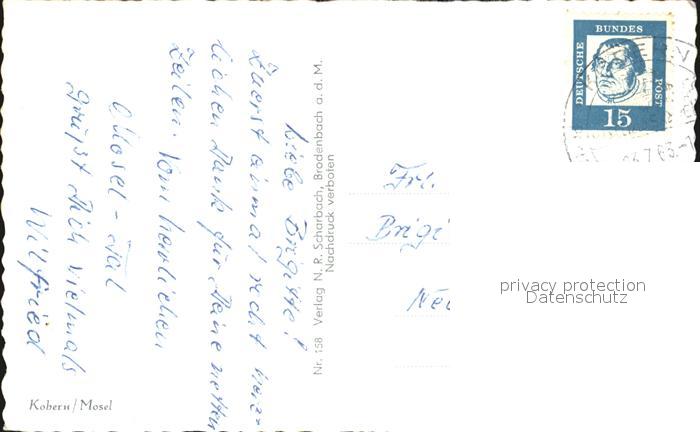 Liebe Brigitte!
Zuerst einmal recht herz-
lichen Dank für Deine netten
Zeilen. Vom herrlichen
Mosel-Tal
grüßt Dich vielmals
Wilfried
Kobern/Mosel
Nr. 158 Verlag N. R. Scharbach, Brodenbach a. d. M.
Nachdruck verboten
DEUTSCHE
BUNDES
POST
15
Frl.
Brigi
Neu
privacy protection
Datenschutz